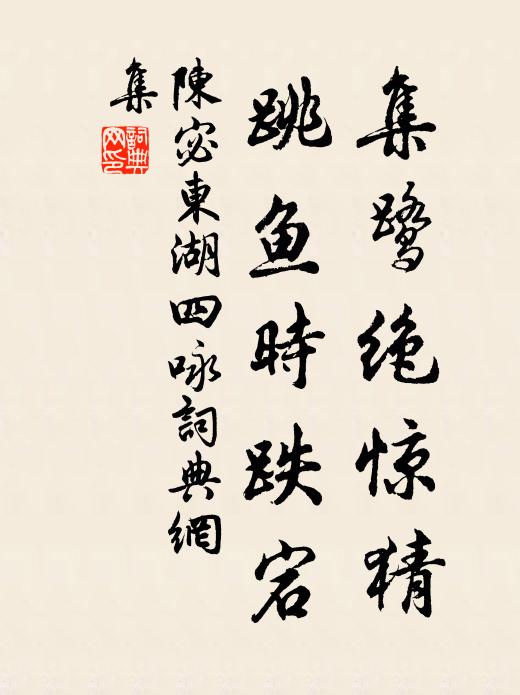 集鹭绝惊猜
跳鱼時跌宕
陳宓東湖四咏詞典網
集
詞典网印